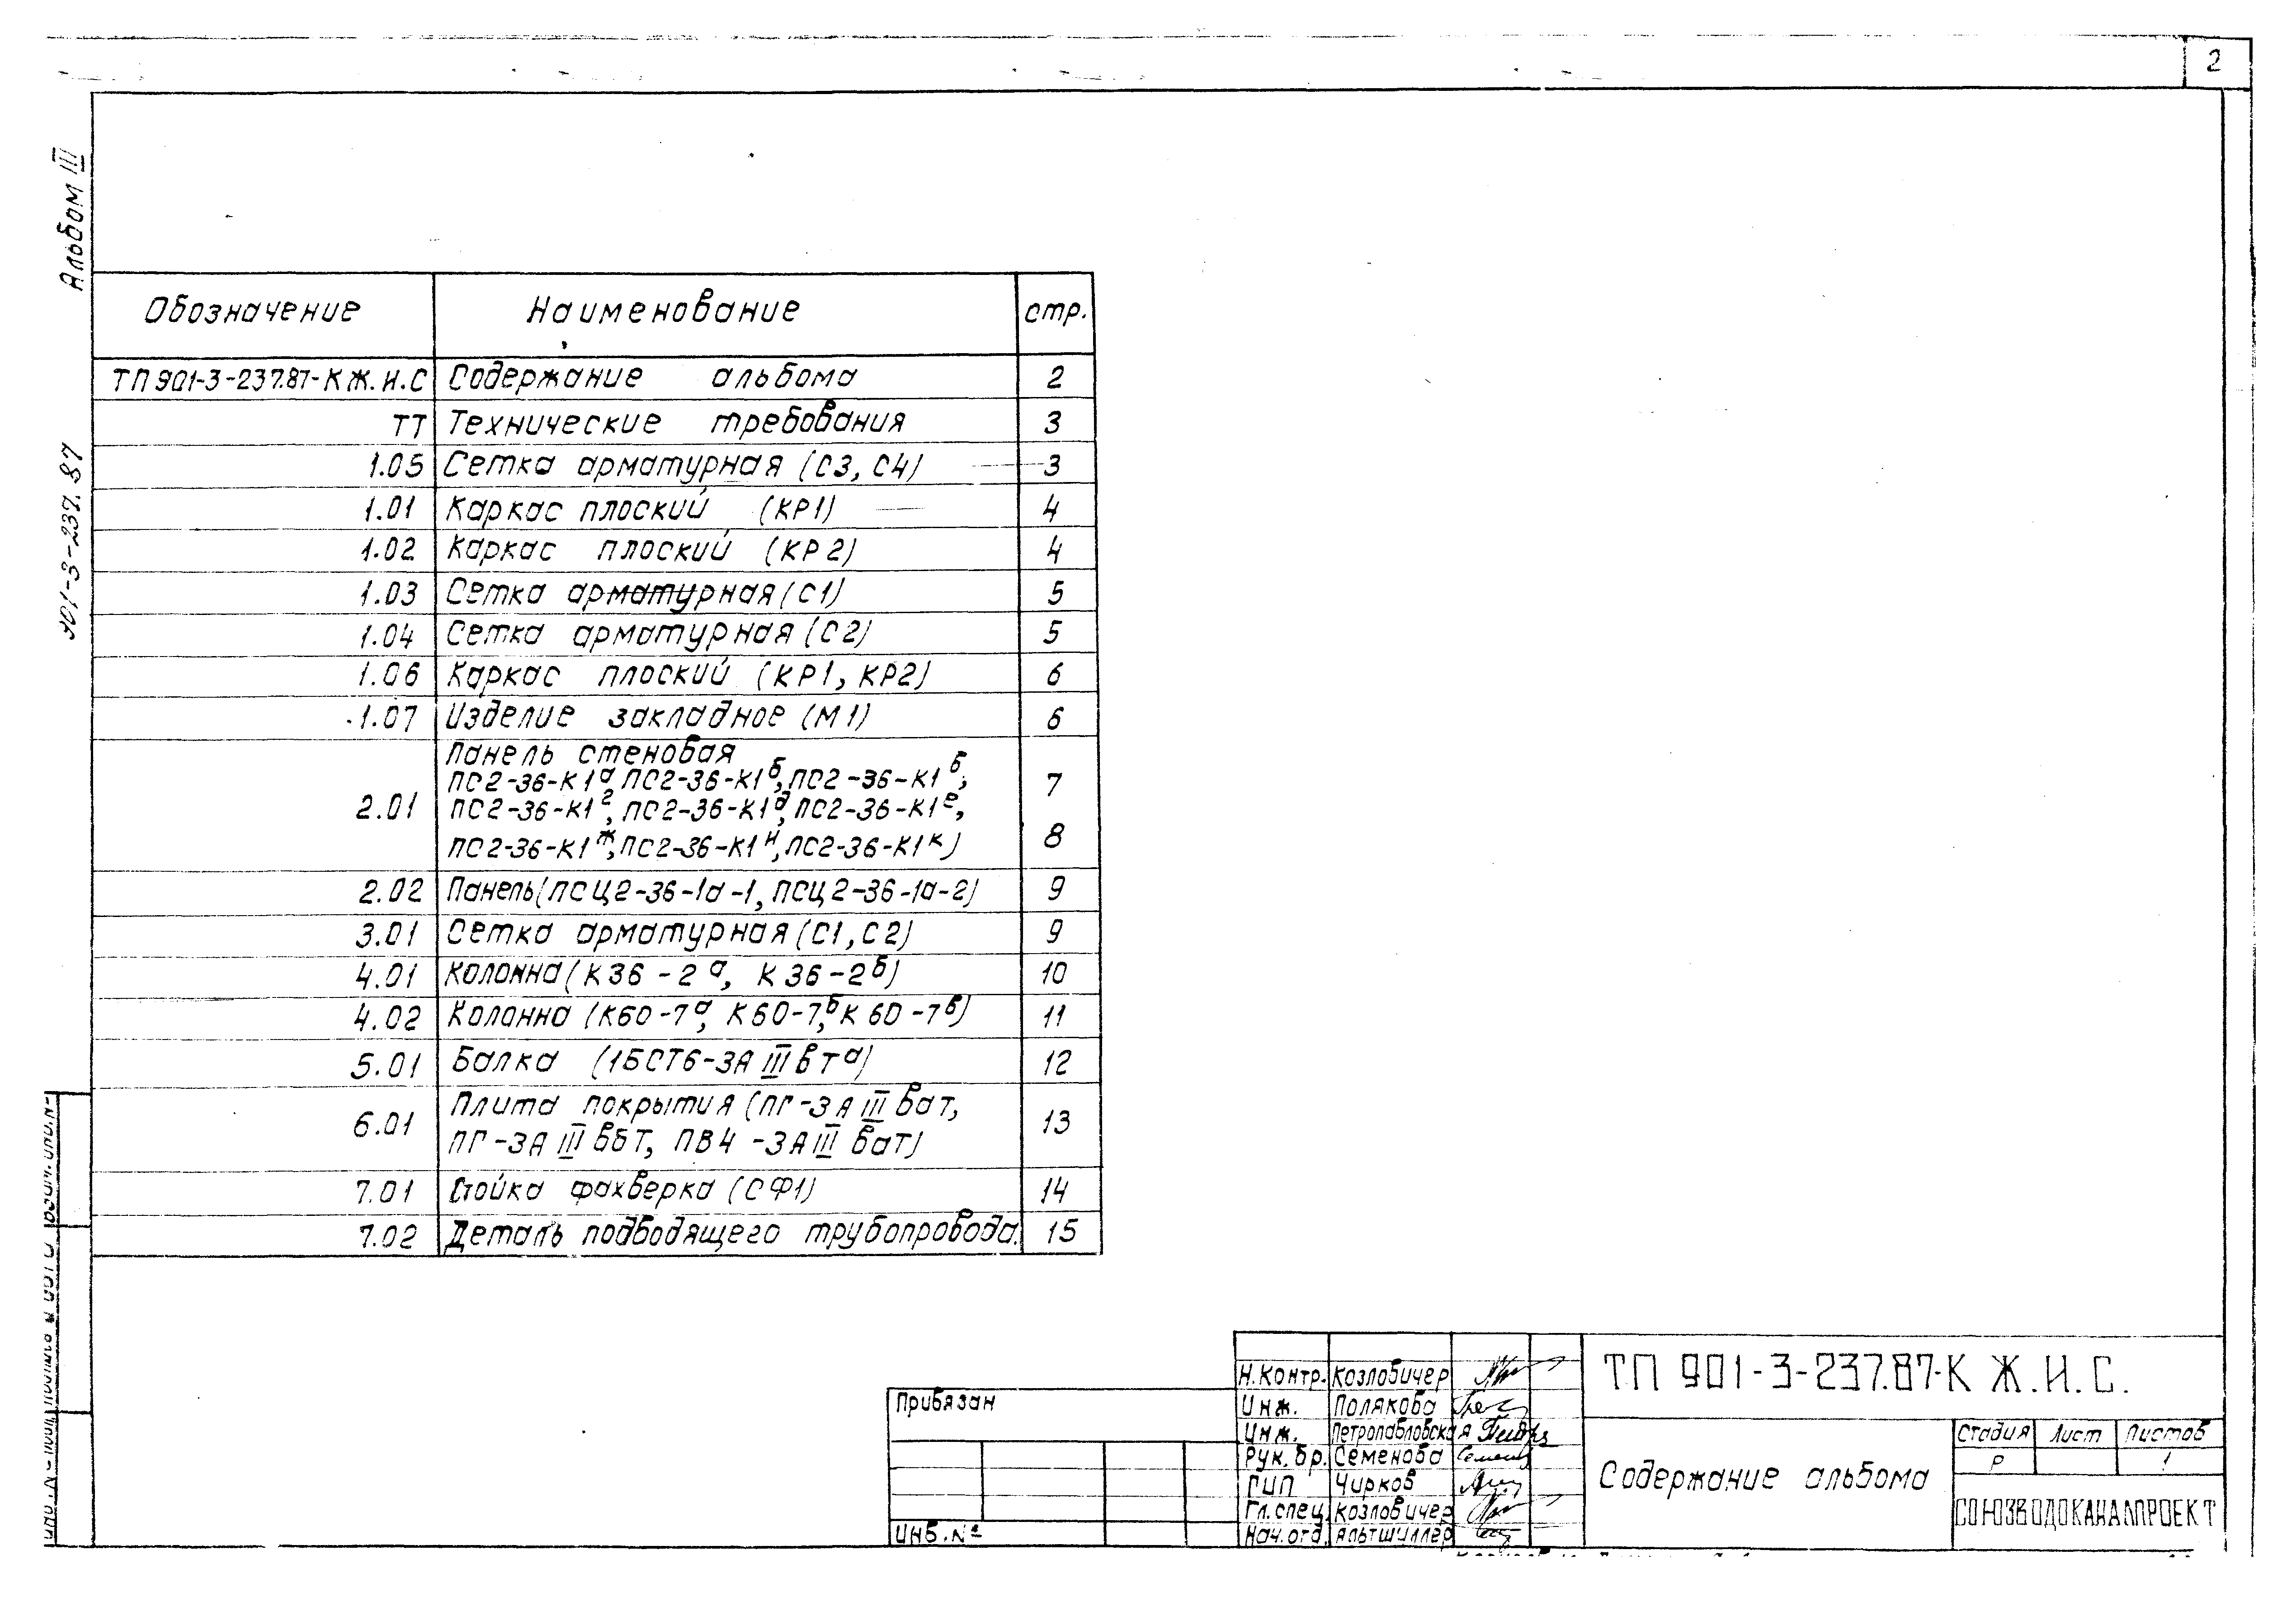 2
Альбом III
901-3-237.87
Обозначение Наименование стр.
ТП 901-3-237.87-КЖ.И.С Содержание альбома 2
ТТ Технические требования 3
1.05 Сетка арматурная (С3, С4) 3
1.01 Каркас плоский (КР1) 4
1.02 Каркас плоский (КР2) 4
1.03 Сетка арматурная (С1) 5
1.04 Сетка арматурная (С2) 5
1.06 Каркас плоский (КР1, КР2) 6
1.07 Изделие закладное (М1) 6
Панель стеновая
ПС2-36-К1а, ПС2-36-К1б, ПС2-36-К1б, 7
2.01 ПС2-36-К1г, ПС2-36-К1д, ПС2-36-К1е,
ПС2-36-К1ж, ПС2-36-К1и, ПС2-36-К1к) 8
2.02 Панель (ПСЦ2-36-1а-1, ПСЦ2-36-1а-2) 9
3.01 Сетка арматурная (С1, С2) 9
4.01 Колонна (К36-2а, К36-2б) 10
4.02 Колонна (К60-7а, К60-7б, К60-7в) 11
5.01 Балка (1БСТ6-3АIIIвТа) 12
6.01 Плита покрытия (ПГ-3АIIIваТ, 13
ПГ-3АIIIвбТ, ПВ4-3АIIIваТ)
7.01 Стойка фахверка (СФ1) 14
7.02 Деталь подводящего трубопровода. 15
Привязан
Инв. №
Н.контр. Козловичер
Инж. Полякова
Инж. Петропавловская
Рук. бр. Семенова
ГИП Чирков
Гл.спец. Козловичер
Нач.отд. Альтшуллер
ТП 901-3-237.87-КЖ.И.С.
Содержание альбома
Стадия Лист Листов
Р 1
СОЮЗВОДОКАНАЛПРОЕКТ